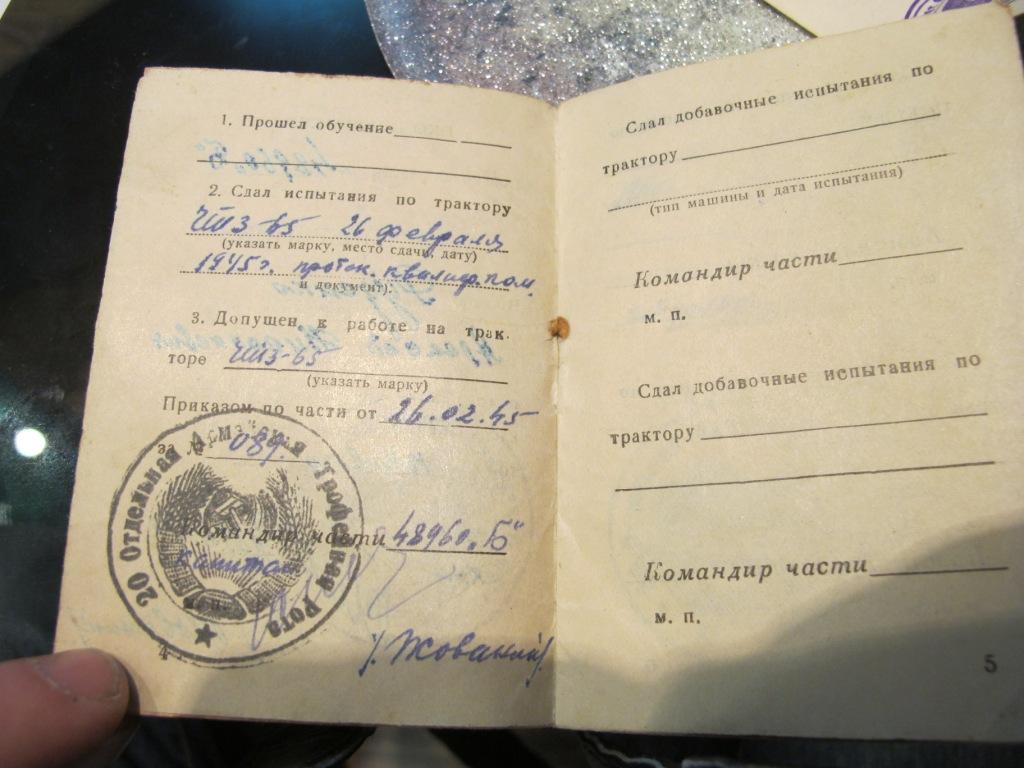 1. Прошел обучение
2. Сдал испытания по трактору
ЧТЗ-65 26 февраля
(указать марку, место сдачи, дату)
1945г. проток. квалиф. ком.
и документ).
3. Допущен к работе на трак-
торе ЧТЗ-65
(указать марку)
Приказом по части от 26.02.45
за № 089.
Командир части 48960 „Б"
капитан
м. п.
20 Отдельная Армейская Трофейная Рота
4
Сдал добавочные испытания по
трактору
(тип машины и дата испытания)
Командир части
м. п.
Сдал добавочные испытания по
трактору
Командир части
м. п.
5